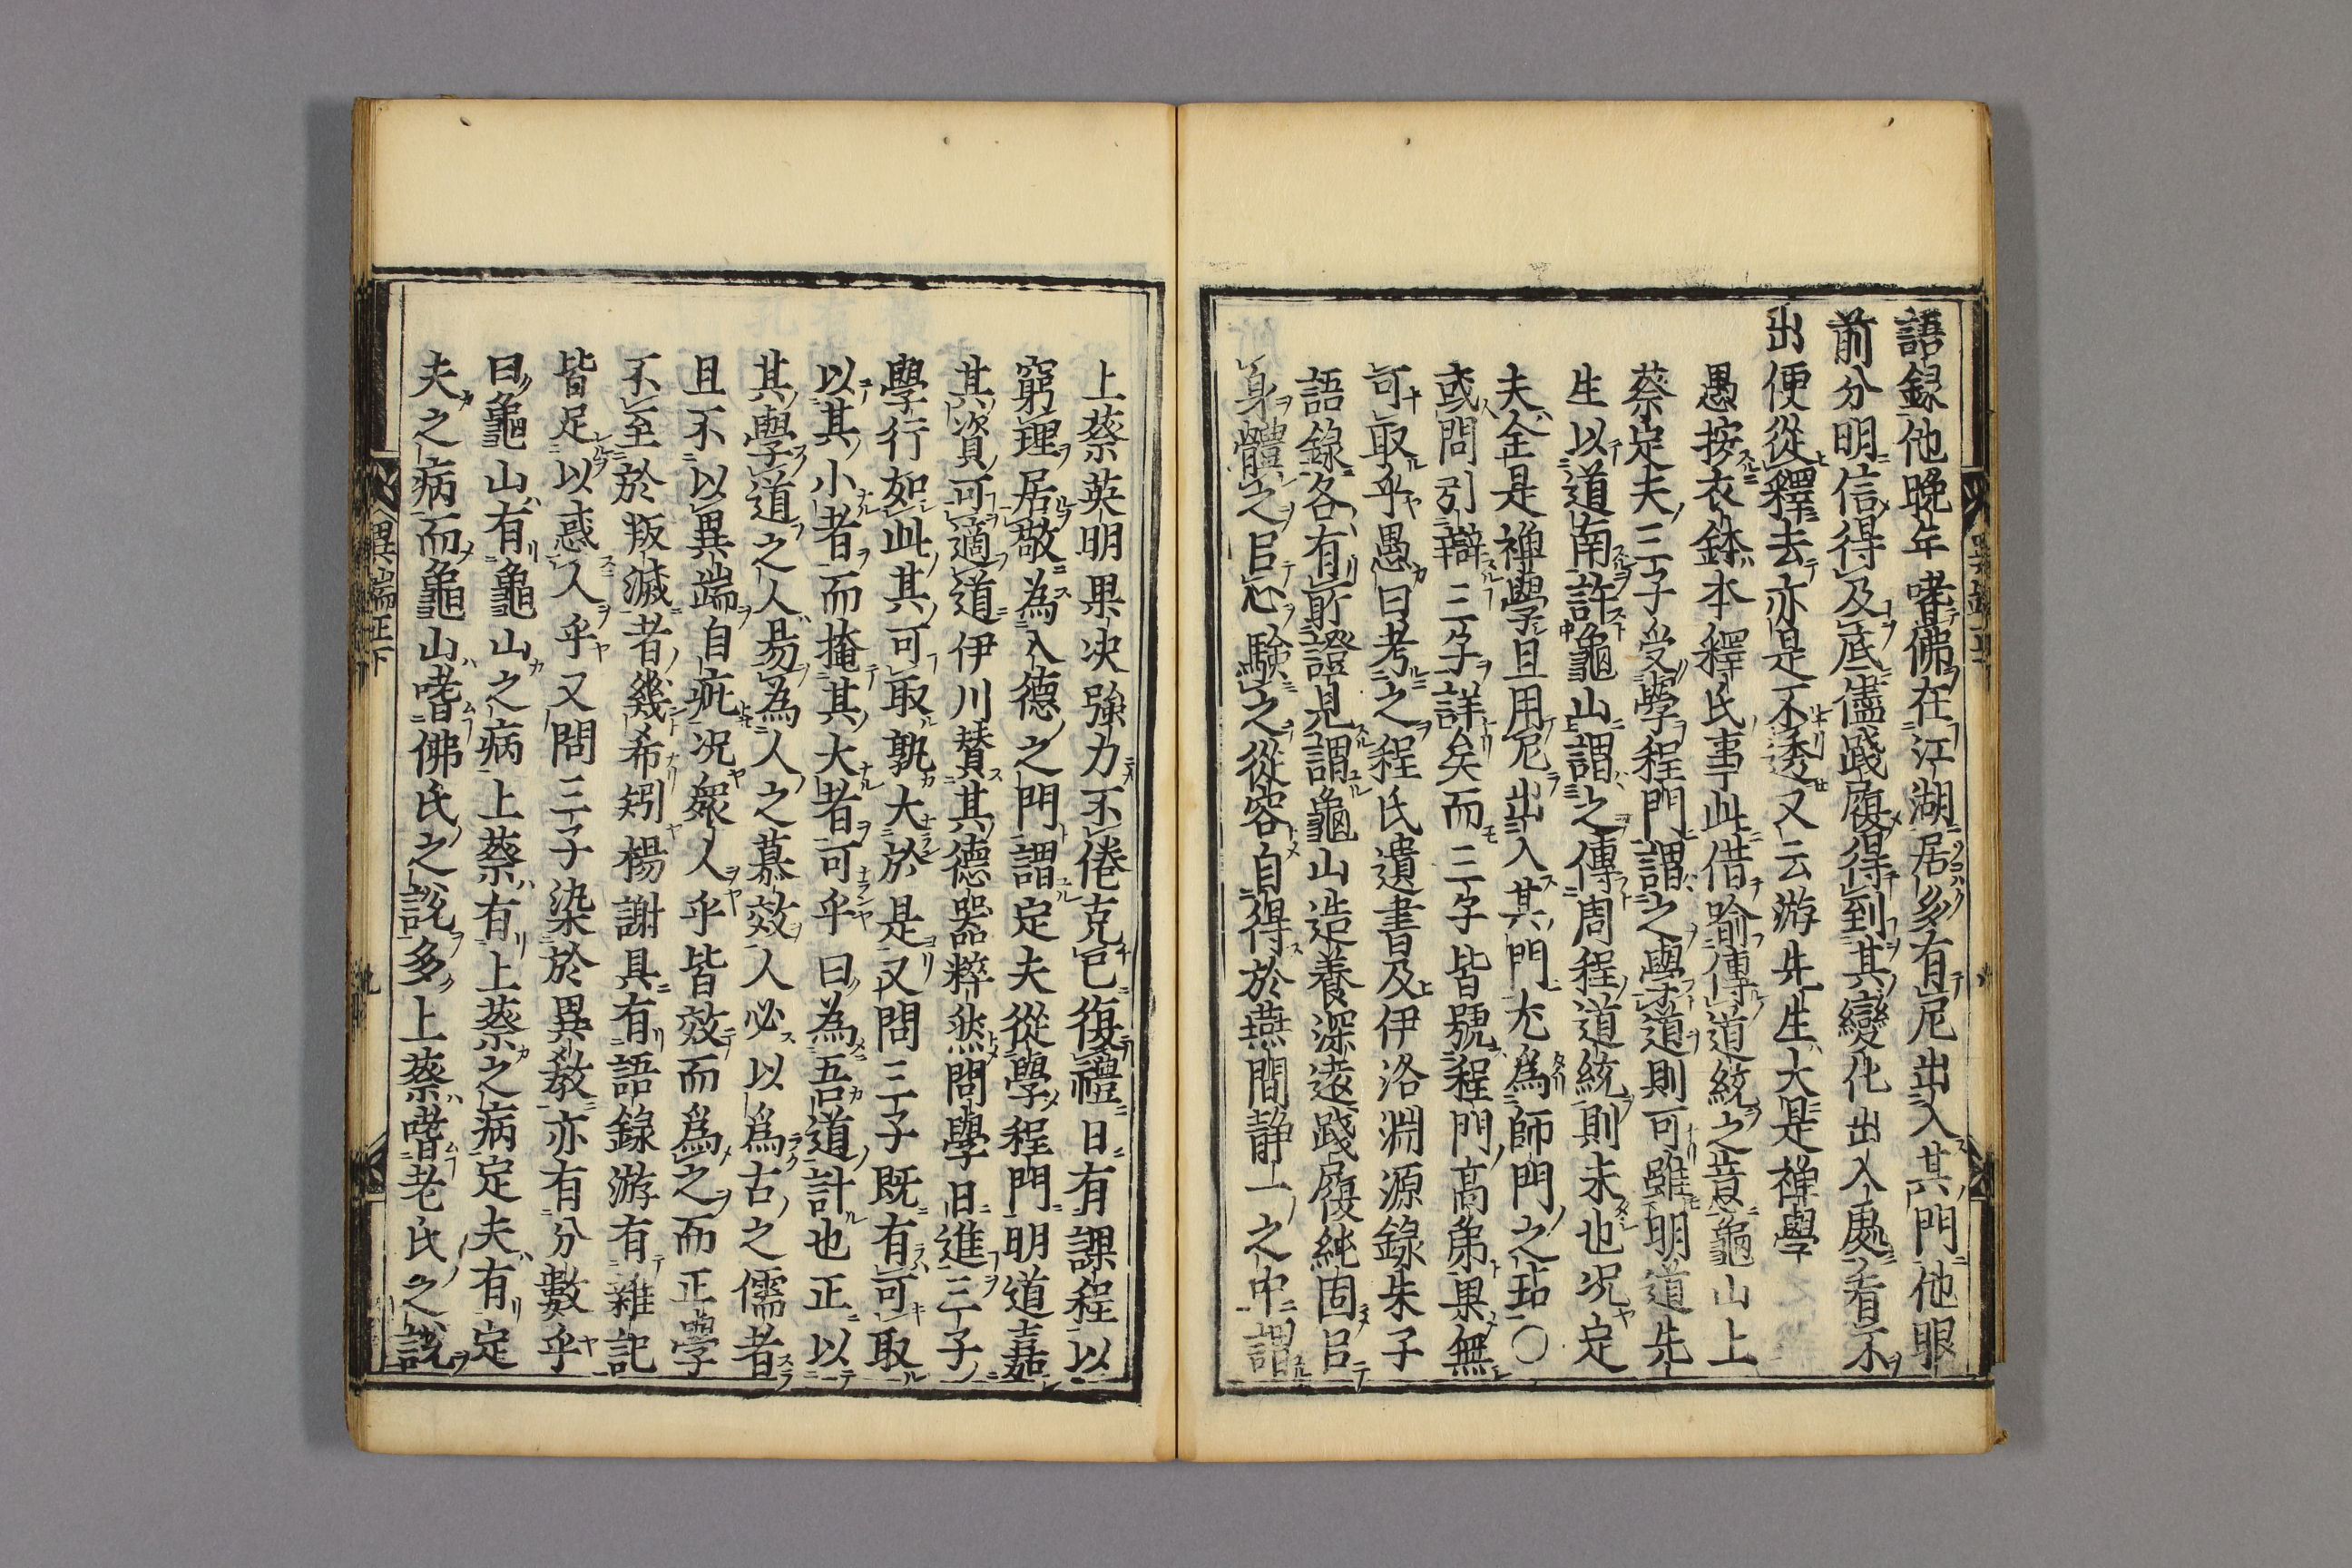 語録他晩年嗜佛在江湖居多有尼出入其門他眼
前分明信得及底儘踐履得到其變化出入處看不
出便從釋去亦是不透又云游先生大是禪學
愚按衣鉢本釋氏事此借喻傳道統之意龜山上
蔡定夫三子受學程門謂之學道則可雖明道先
生以道南許龜山謂之傳周程道統則未也况定
夫全是禪學且用尼出入其門尤為師門之玷〇
或問引辯三子詳矣而三子皆號程門高弟果無
可取乎愚曰考之程氏遺書及伊洛淵源錄朱子
語錄各有所證見謂龜山造養深遠踐履純固㠯
身體之㠯心驗之從容自得於燕閒静一之中謂
上蔡英明果决強力不倦克己復禮日有課程以
窮理居敬為入德之門謂定夫從學程門明道嘉
其資可適道伊川賛其德器粹然問學日進三子
學行如此其可取孰大於是又問三子既有可取
以其小者而掩其大者可乎曰為吾道計也正以
其學道之人易為人之慕效人必以為古之儒者
且不以異端自疵况衆人乎皆效而為之而正學
不至於叛滅者幾希矧楊謝具有語錄游有雜記
皆足以惑人乎又問三子染於異教亦有分數乎
曰龜山有龜山之病上蔡有上蔡之病定夫有定
夫之病而龜山嗜佛氏之說多上蔡嗜老氏之說
異端正下
九